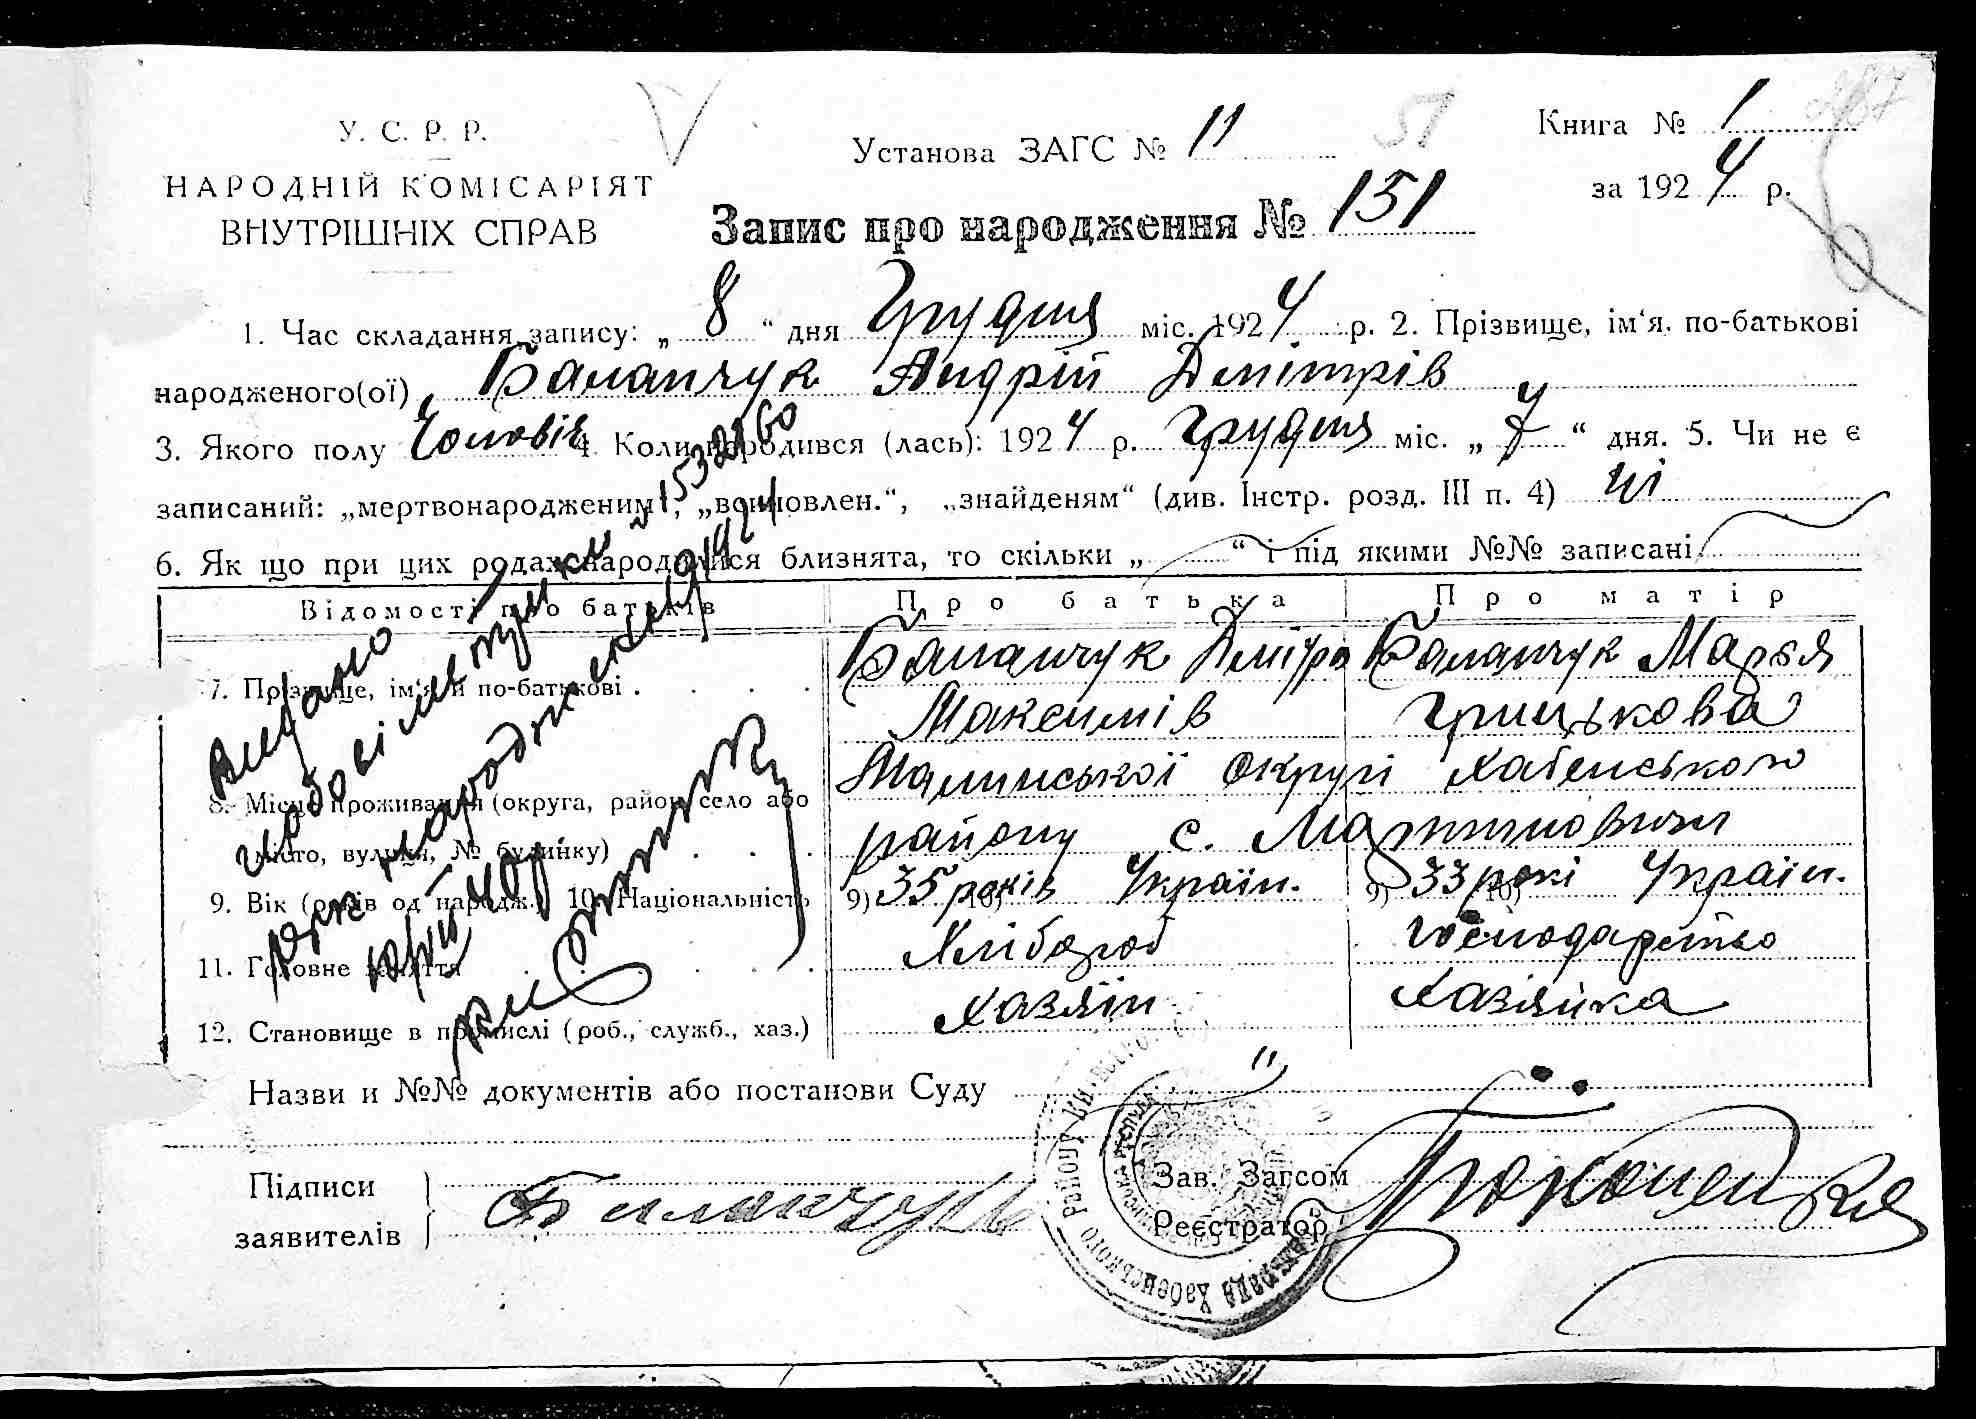 У. С. Р. Р.
НАРОДНІЙ КОМІСАРІЯТ
ВНУТРІШНІХ СПРАВ
Установа ЗАГС № 11
51
Книга № 1
за 1924 р.
Запис про народження № 151
1. Час складання запису: „ 8 “ дня Грудня міс. 1924 р. 2. Прізвище, ім‘я, по-батькові
народженого(ої) Баланчук Андрій Дмітрів
3. Якого полу Чоловік 4. Коли народився (лась): 1924 р. Грудня міс. „ 7 “ дня. 5. Чи не є
записаний: „мертвонародженим“, „воиновлен.“, „знайденям“ (див. Інстр. розд. III п. 4) ні
6. Як що при цих родах народилися близнята, то скільки „ “ і під якими №№ записані
Відомості про батьків Про батька Про матір
7. Прізвище, ім‘я и по-батькові Баланчук Дмітро Баланчук Марья
Максимів Грицькова
8. Місце проживання (округа, район, село або Малинської округі Хабенського
місто, вулиця, № будинку) району с. Мартиновичи
9. Вік (років од народж.) 10. Національність 9) 35 років 10) Україн. 9) 33 рокі 10) Україн.
11. Головне заняття Хлібороб господарство
12. Становище в промислі (роб., служб., хаз.) Хазяїн Хазяйка
Видано
про народження
Назви и №№ документів або постанови Суду
Підписи
заявителів
Баланчук
Зав. Загсом
Реєстратор
Хабенського Району